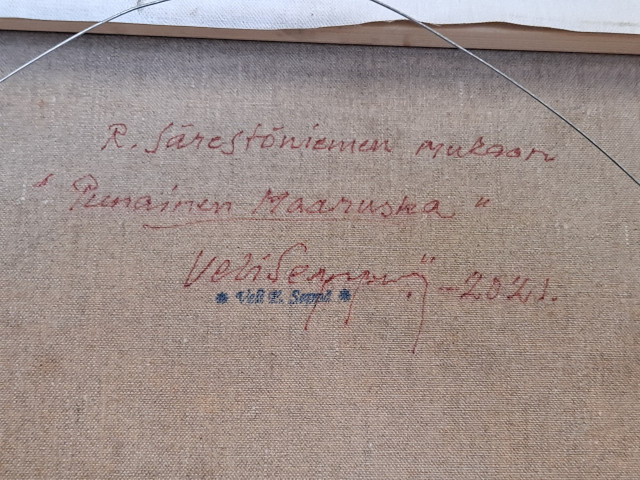 R. Särestöniemen mukaan
"Punainen Maaruska"
Veli Seppä -2021.
* Veli E. Seppä *